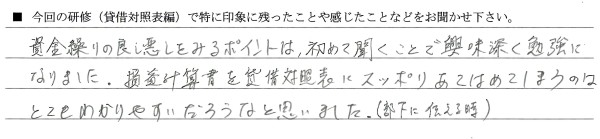 ■ 今回の研修（貸借対照表編）で特に印象に残ったことや感じたことなどをお聞かせ下さい。
資金繰りの良し悪しをみるポイントは、初めて聞くことで興味深く勉強に
なりました。損益計算書を貸借対照表にスッポリあてはめてしまうのは
とてもわかりやすいだろうなと思いました。(部下に伝える時)